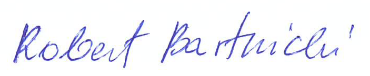 Robert Bartnicki